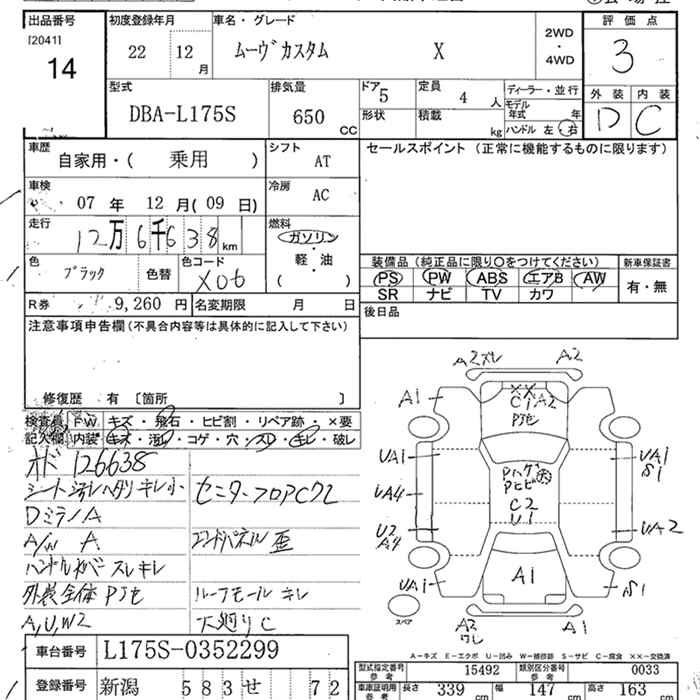 出品番号
[2041]
14
初度登録年月
22 12 月
車名・グレード
ムーヴカスタム X
2WD
・
4WD
評価点
3
型式
DBA-L175S
排気量
650 CC
ドア 5
形状
定員 4 人
積載 kg
ディーラー・並行
モデル年式 年
ハンドル 左 右
外装 内装
D C
車歴
自家用・( 乗用 )
シフト
AT
セールスポイント (正常に機能するものに限ります)
車検
07 年 12 月 (09 日)
冷房
AC
走行
12 万 6 千 6 3 8 km
燃料
ガソリン
・
軽・油
( )
色
ブラック
色替
色コード
X06
装備品 (純正品に限り○をつけてください)
新車保証書
PS PW ABS エアB AW
有・無
SR ナビ TV カワ
R券 9,260 円
名変期限 月 日
後日品
注意事項申告欄(不具合内容等は具体的に記入して下さい)
修復歴 有 [箇所 ]
検査員 FW キズ・飛石・ヒビ割・リペア跡・×要
記入欄 内装 キズ・汚レ・コゲ・穴・スレ・キレ・破レ
126638
シート汚レヘタリ キレ小
センターフロアC72
A
A/W A
歪
ハンドルカバー スレキレ
外装全体
ルーフモール キレ
A,U,W2
下廻りC
A2ズレ A2
A1
C1 A2
UA1
UA1
S1
UA4
C2
U1
U2
A4
UA2
UA1
A1
S1
スペア
A2
ワレ
A1
A-キズ E-エクボ U-凹み W-補修跡 S-サビ C-腐食 XX-交換済
車台番号
L175S-0352299
型式指定番号 参考 15492
類別区分番号 参考 0033
登録番号
新潟 583 せ 72
車庫証明用 参考 長さ 339 cm 幅 147 cm 高さ 163 cm